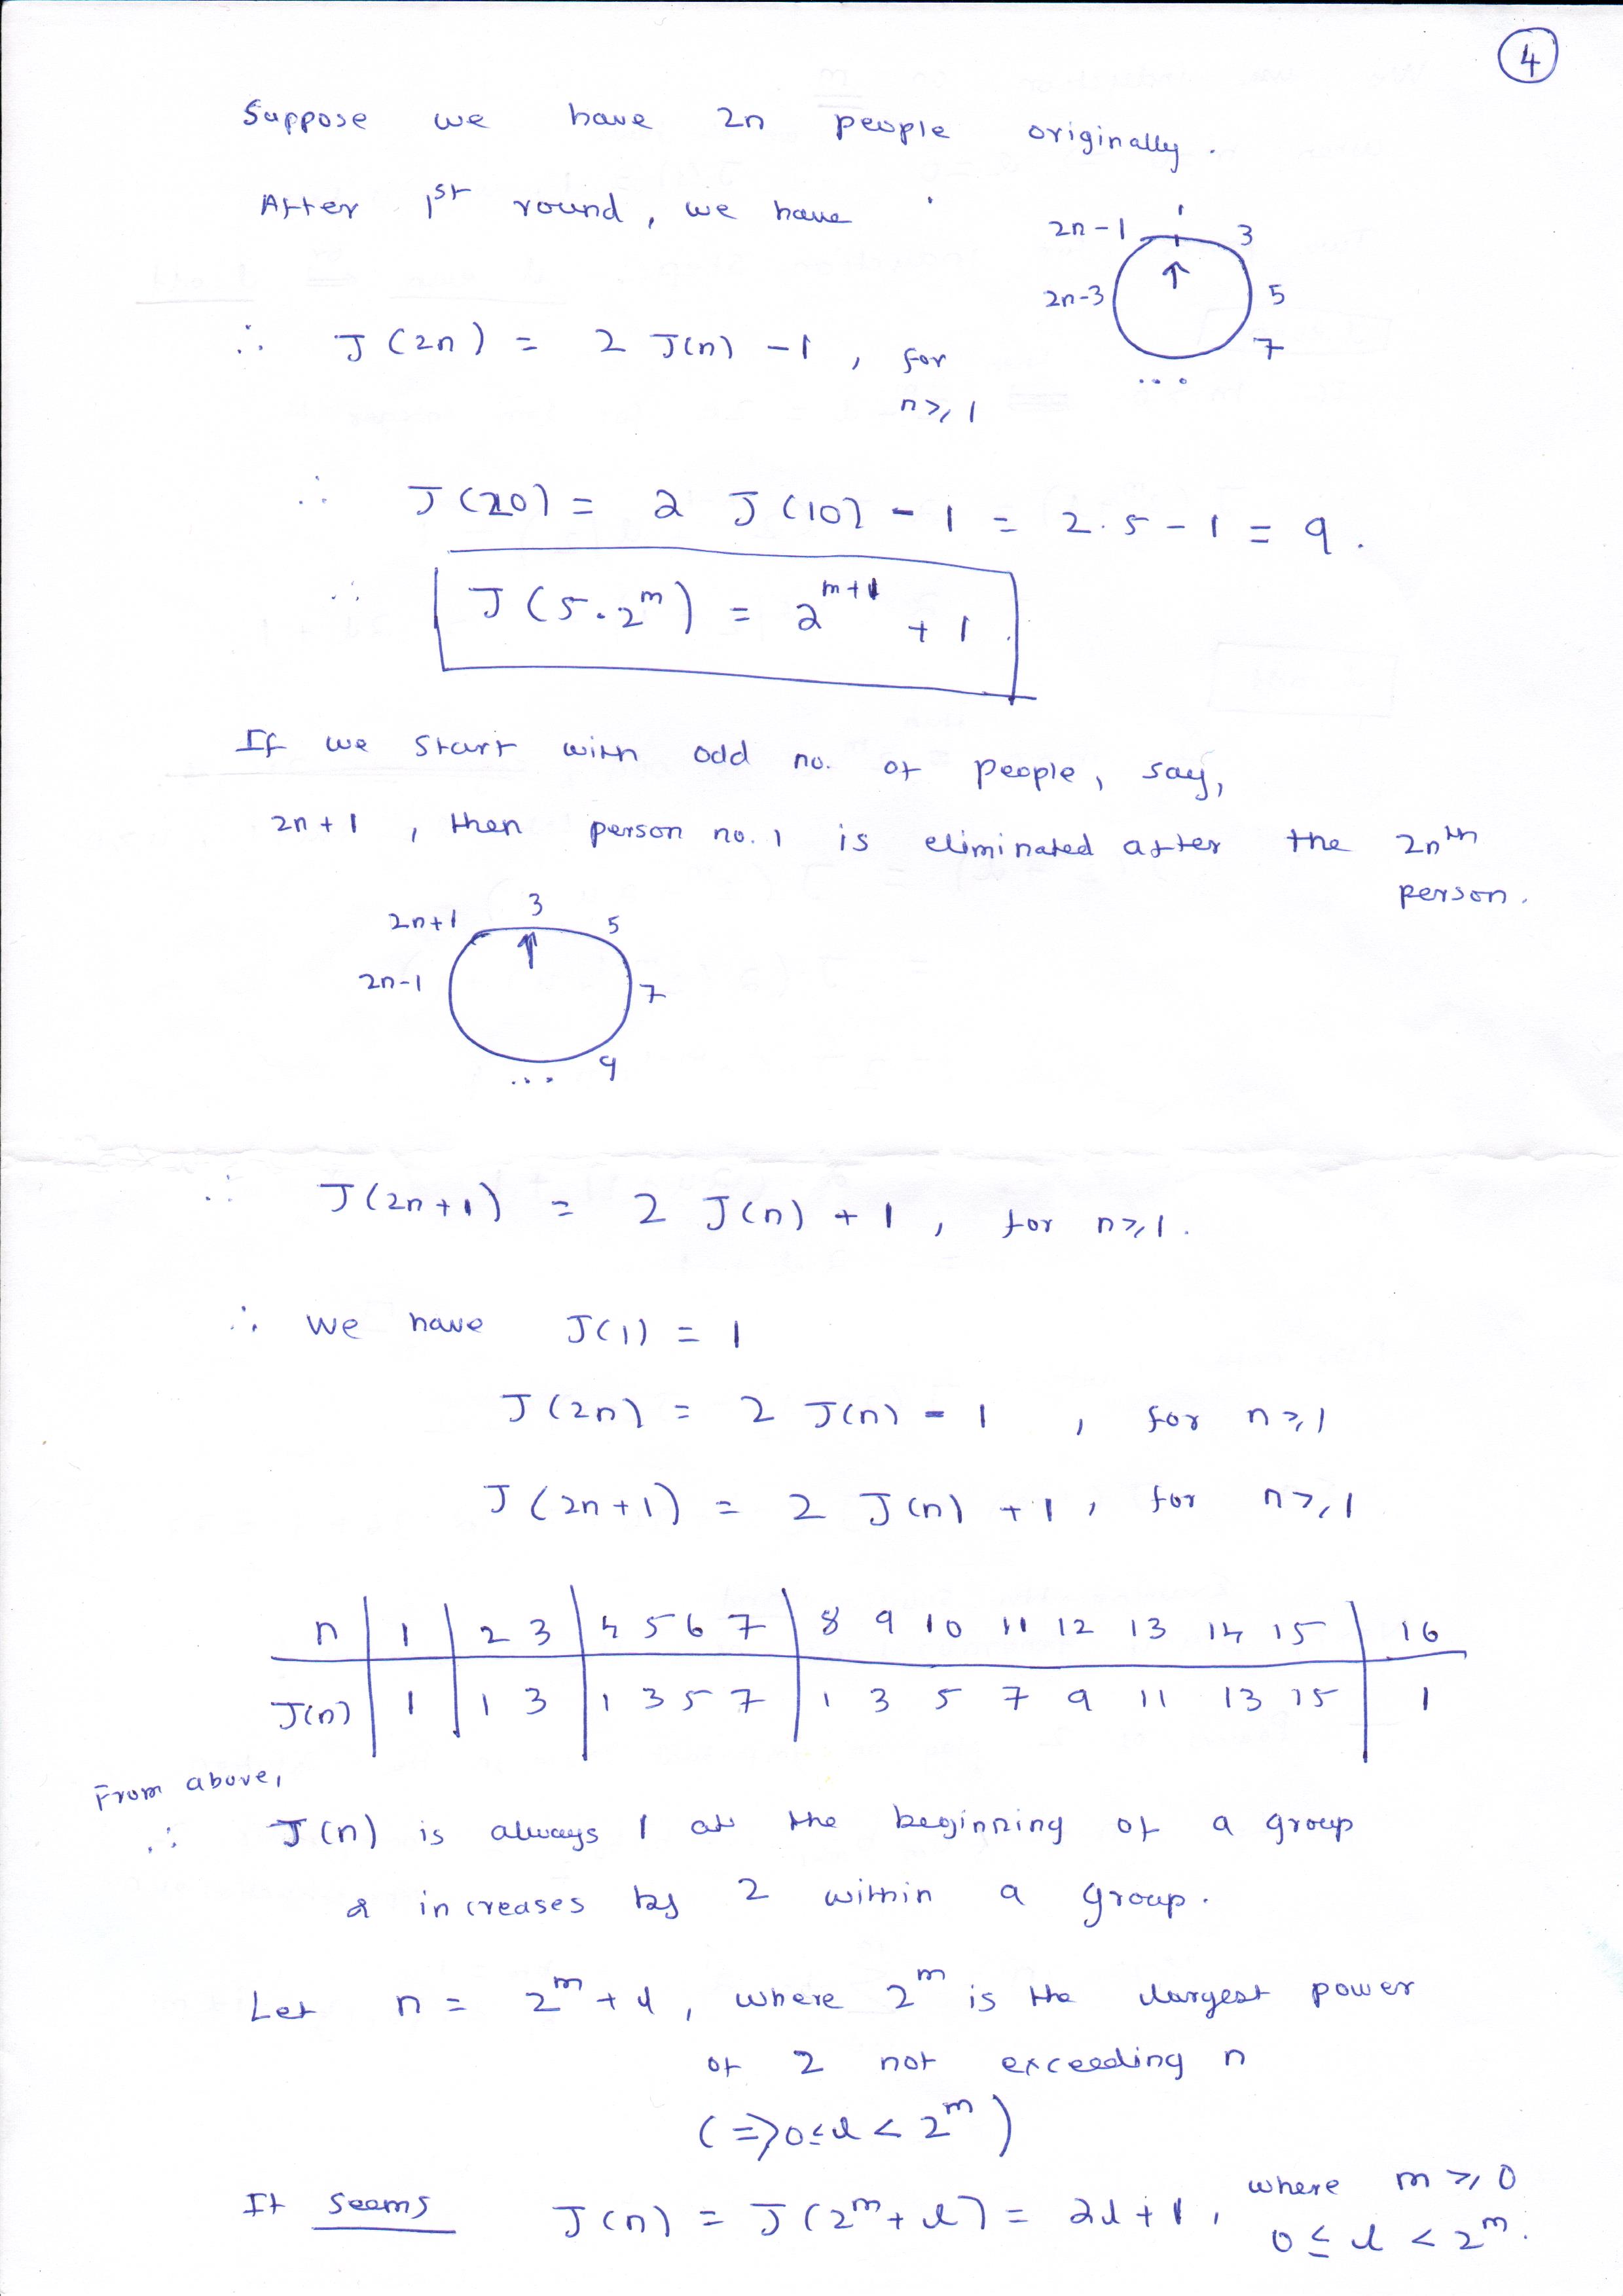 4
Suppose we have 2n people originally.
After 1st round, we have
1
2n-1 3
2n-3 5
7
...
∴ J(2n) = 2 J(n) - 1, for
n ≥ 1
∴ J(20) = 2 J(10) - 1 = 2.5 - 1 = 9.
∴ J(5.2^m) = 2^(m+1) + 1
If we start with odd no. of people, say,
2n+1, then person no. 1 is eliminated after the 2nth
person.
3
2n+1 5
2n-1 7
9
...
∴ J(2n+1) = 2 J(n) + 1, for n ≥ 1.
∴ we have J(1) = 1
J(2n) = 2 J(n) - 1, for n ≥ 1
J(2n+1) = 2 J(n) + 1, for n ≥ 1
n | 1 | 2 3 | 4 5 6 7 | 8 9 10 11 12 13 14 15 | 16
J(n) | 1 | 1 3 | 1 3 5 7 | 1 3 5 7 9 11 13 15 | 1
From above,
∴ J(n) is always 1 at the beginning of a group
& increases by 2 within a group.
Let n = 2^m + l, where 2^m is the largest power
of 2 not exceeding n
(⇒ 0 ≤ l < 2^m)
It seems J(n) = J(2^m + l) = 2l + 1, where m ≥ 0
0 ≤ l < 2^m.